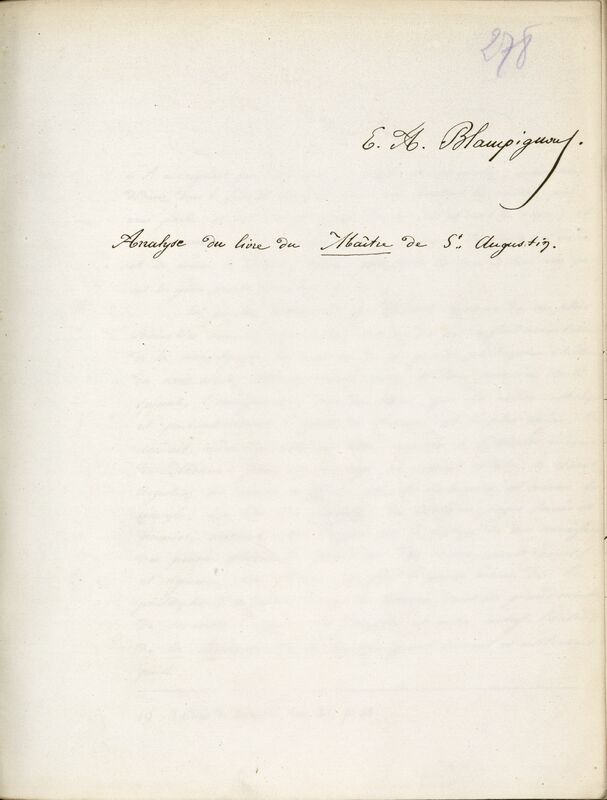 278
E. A. Blampignon.
Analyse du livre du Maître de St. Augustin.